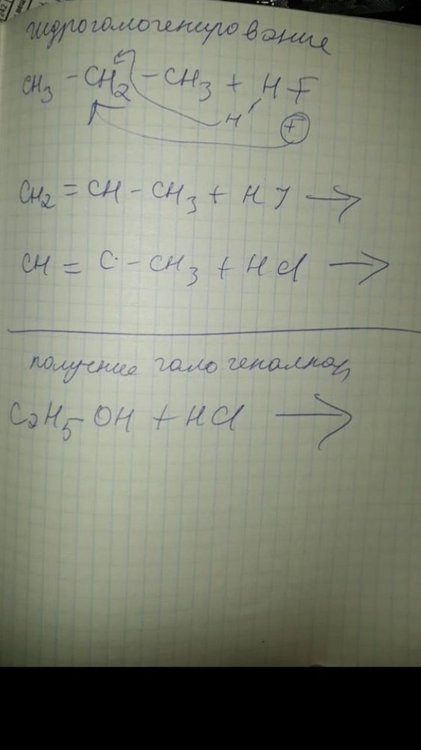 гидрогалогенирование
CH3 - CH2 - CH3 + HF
H F
CH2 = CH - CH3 + HJ →
CH = C - CH3 + HCl →
получение галогеналкан
C2H5-OH + HCl →